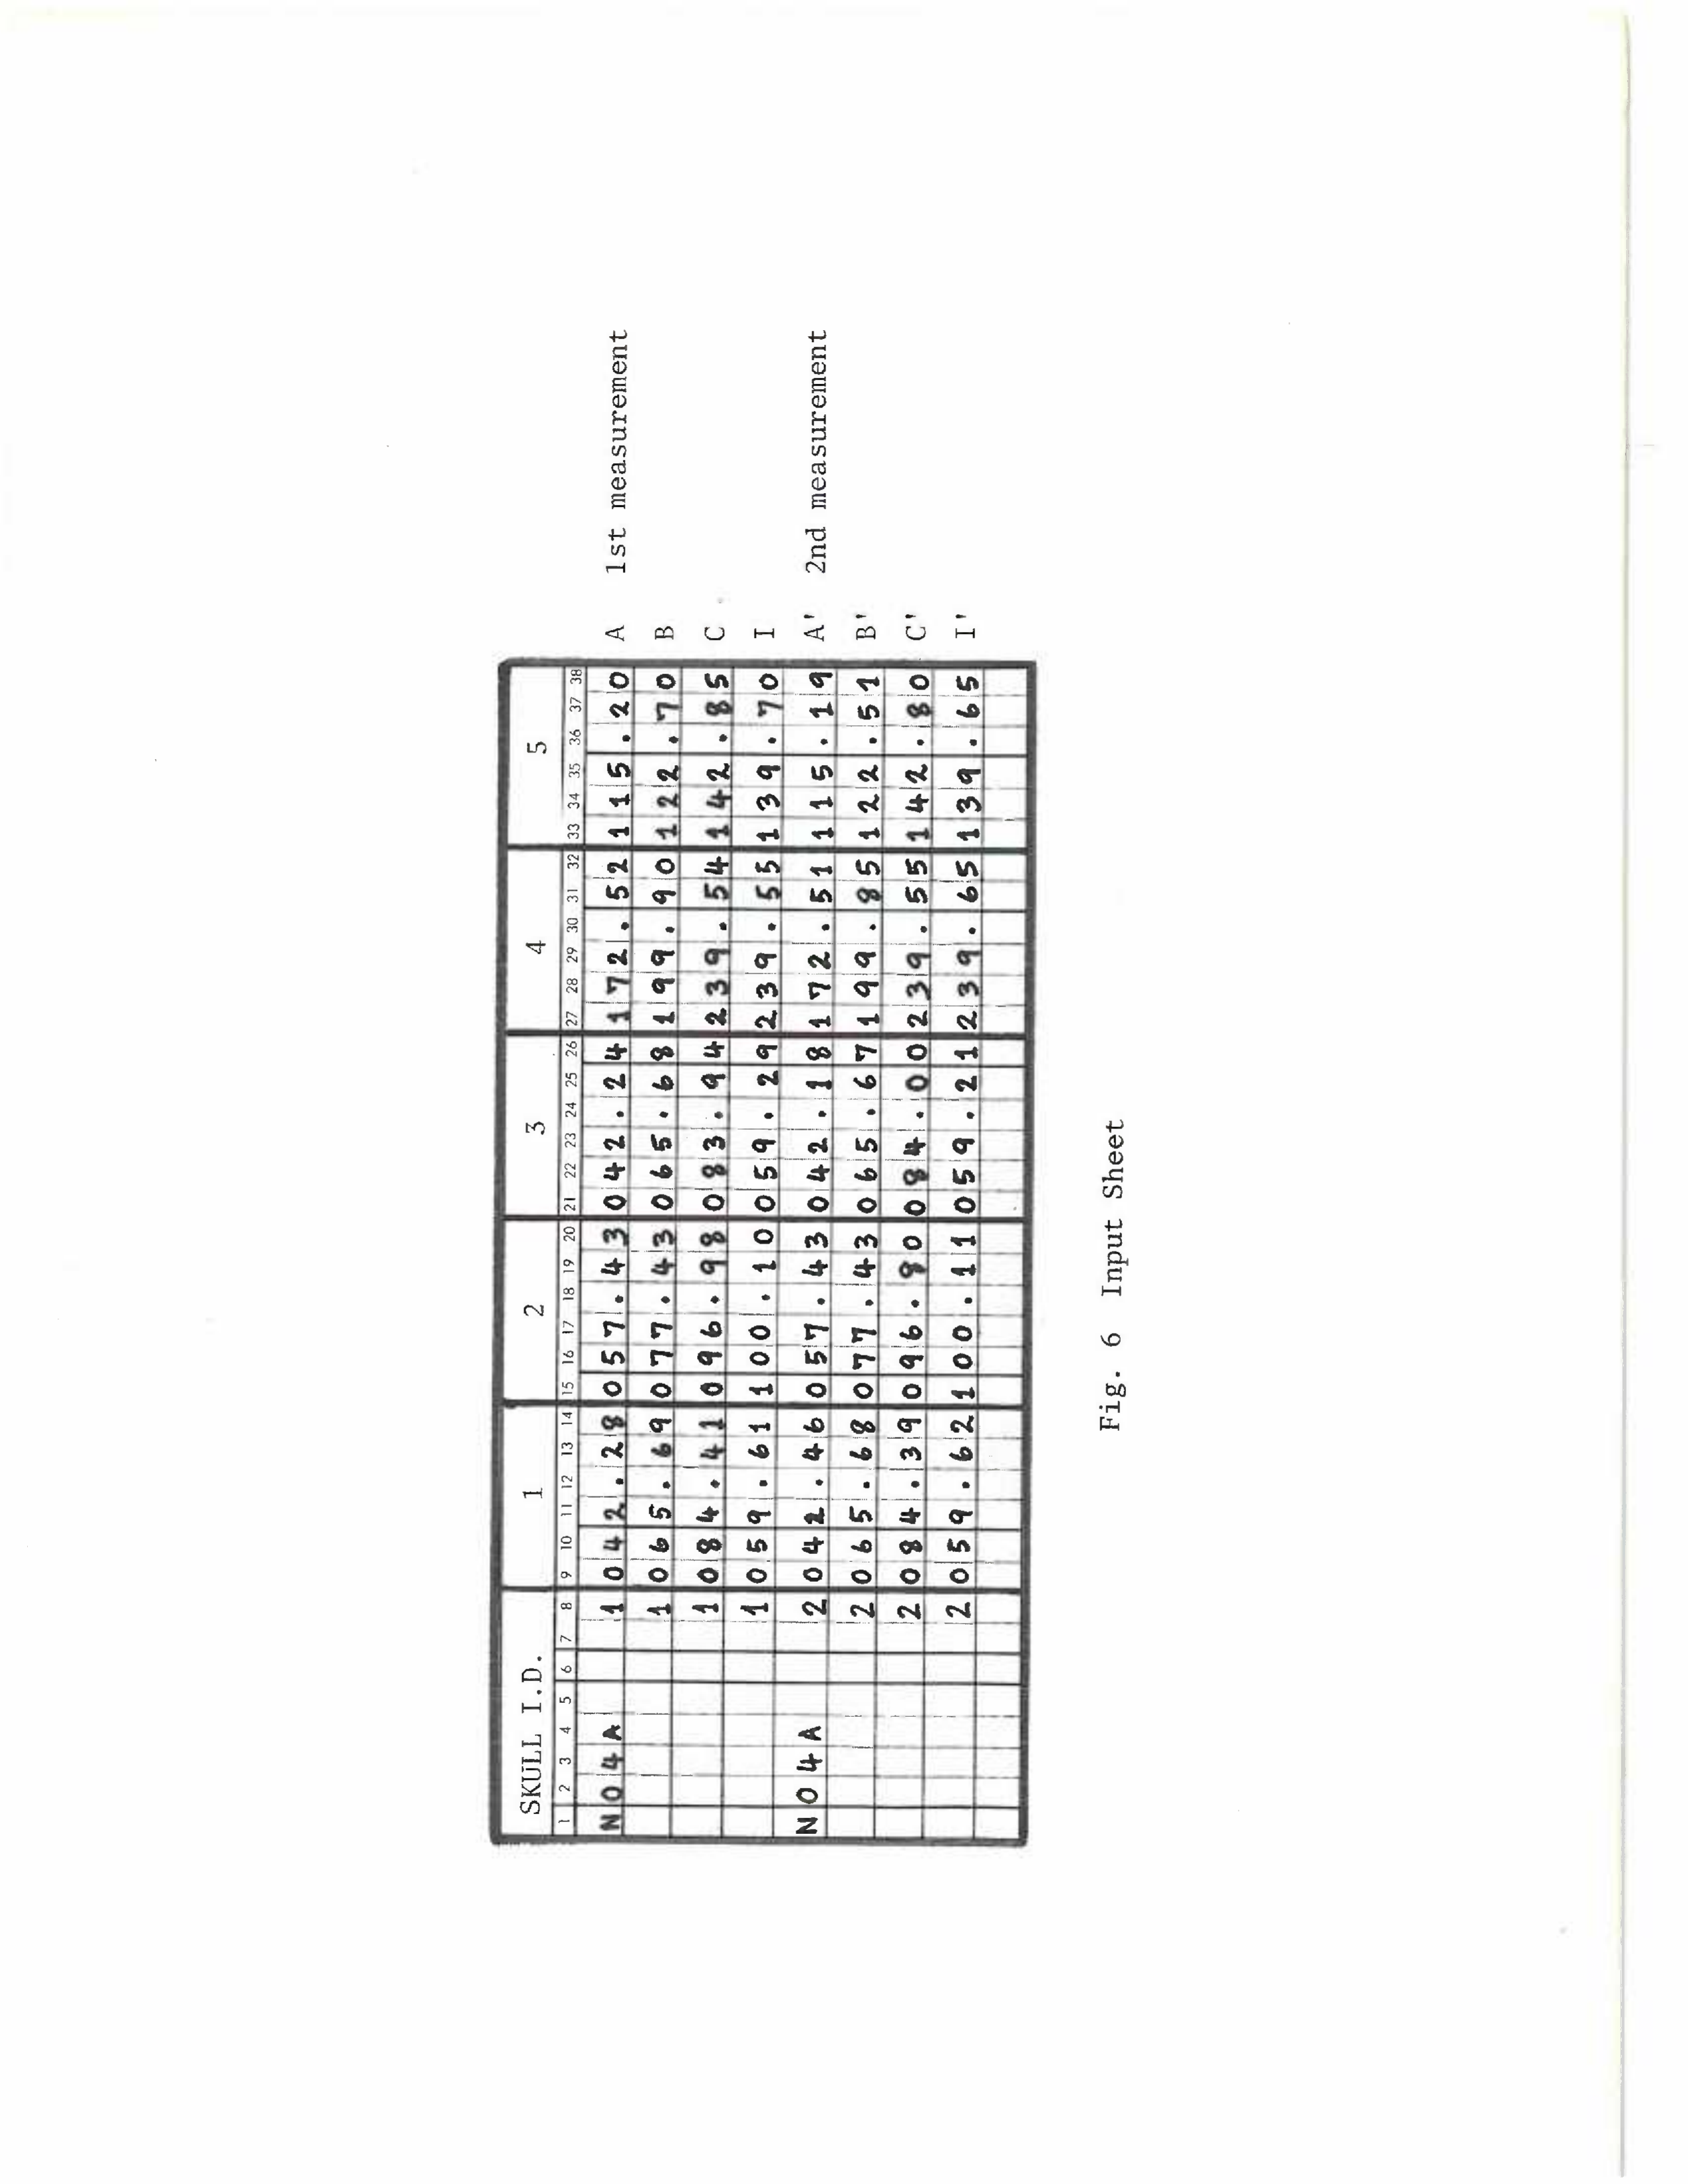 SKULL I.D. 1 2 3 4 5
1 2 3 4 5 6 7 8 9 10 11 12 13 14 15 16 17 18 19 20 21 22 23 24 25 26 27 28 29 30 31 32 33 34 35 36 37 38
N04A 1 042.28 057.43 042.24 172.52 115.20 A 1st measurement
1 065.69 077.43 065.68 199.90 122.70 B
1 084.41 096.98 083.94 239.54 142.85 C
1 059.61 100.10 059.29 239.55 139.70 I
N04A 2 042.46 057.43 042.18 172.51 115.19 A' 2nd measurement
2 065.68 077.43 065.67 199.85 122.51 B'
2 084.39 096.80 084.00 239.55 142.80 C'
2 059.62 100.11 059.21 239.65 139.65 I'
Fig. 6 Input Sheet